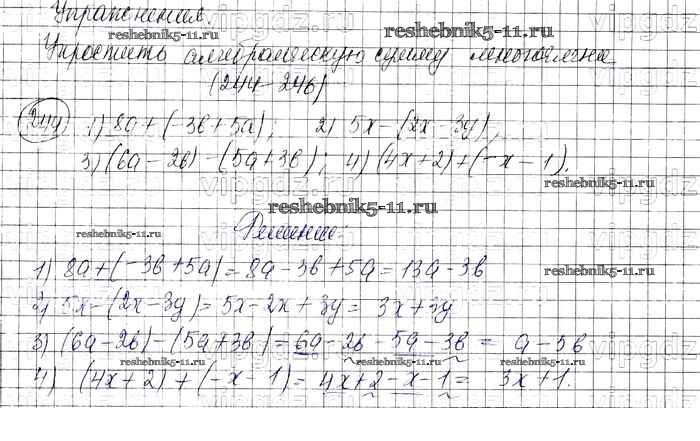 Упражнения
reshebnik5-11.ru
Упростить алгебраическую сумму многочлена
(244-246)
244) 1) 8a + (-3в + 5a); 2) 5x - (2x - 3y);
3) (6a - 2в) - (5a + 3в); 4) (4x + 2) + (-x - 1).
reshebnik5-11.ru
reshebnik5-11.ru
reshebnik5-11.ru Решение:
1) 8a + (-3в + 5a) = 8a - 3в + 5a = 13a - 3в
reshebnik5-11.ru
2) 5x - (2x - 3y) = 5x - 2x + 3y = 3x + 3y
3) (6a - 2в) - (5a + 3в) = 6a - 2в - 5a - 3в = a - 5в
reshebnik5-11.ru reshebnik5-11.ru reshebnik5-11.ru
4) (4x + 2) + (-x - 1) = 4x + 2 - x - 1 = 3x + 1.